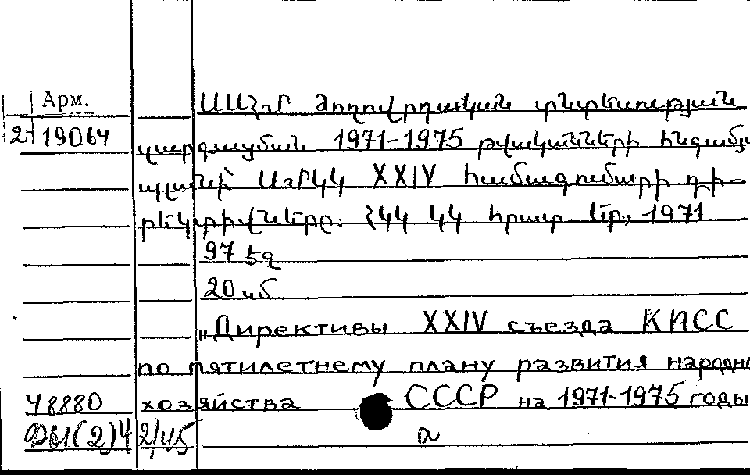 Арм. ՍՍՀՄ ժողովրդական տնտեսության
2-19064 զարգացման 1971-1975 թվականների հնգամյա
պլանի ՍՄԿԿ XXIV համագումարի դի-
րեկտիվները. ՀԿԿ ԿԿ հրատ. Եր., 1971
97 էջ
20
„Директивы XXIV съезда КПСС
по пятилетнему плану развития народно
48880 хозяйства СССР на 1971-1975 годы
а